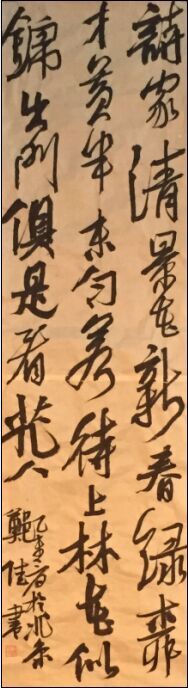 詩家清景在新春綠柳
才黃半未勻若待上林花似
錦出門俱是看花人
於北京
鄭書